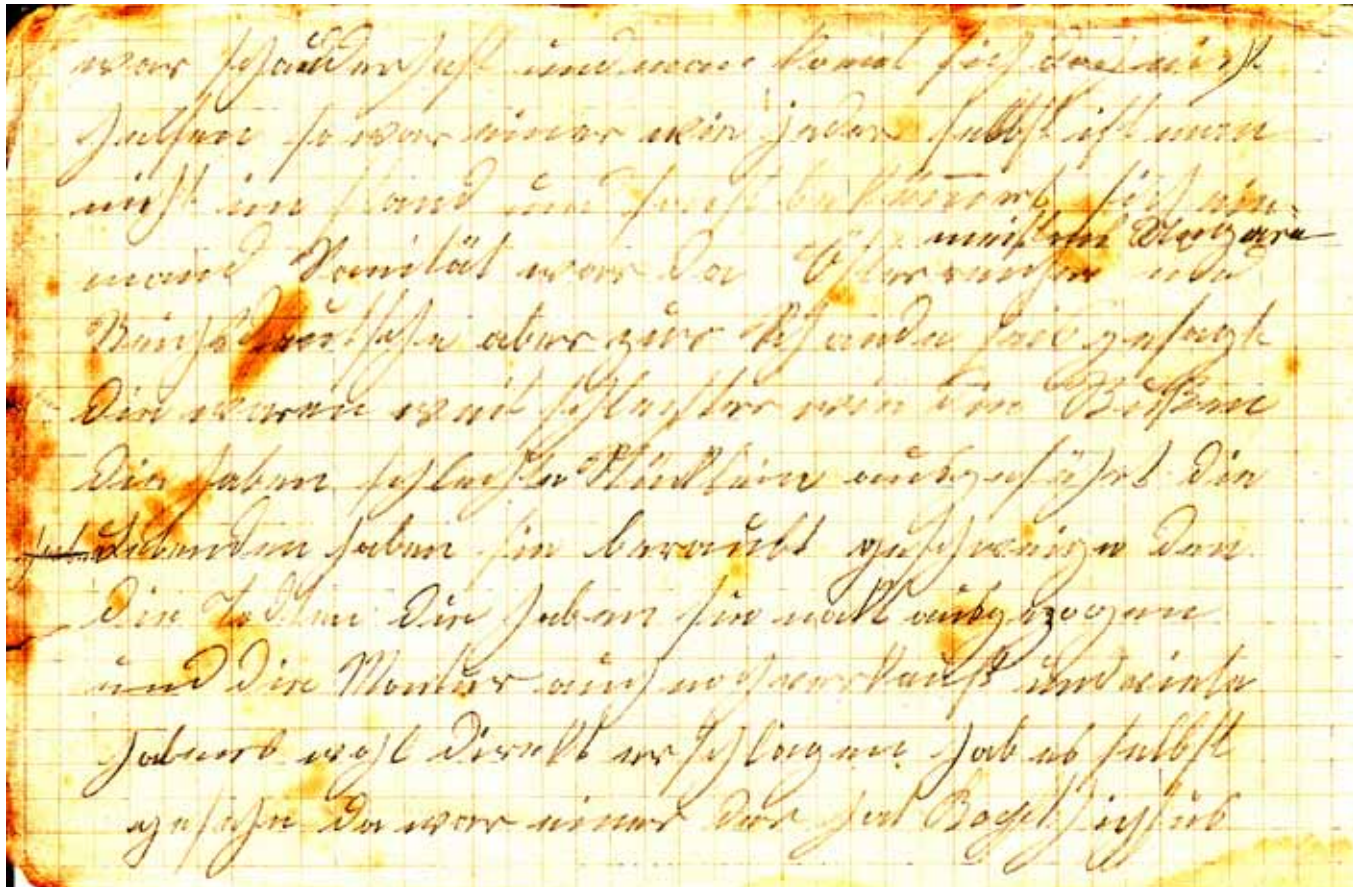 war schauderhaft und man konnt sich doch nicht
helfen so war einer wie jeder selbst ist man
nicht im stand und sonst bekümert sich nie-
meistens Ungarn
mand Sanität war da Österreicher und
Reichsdeutsche aber zur Schande seis gesagt
die waren weit schlechter wie die
die haben schlechte Stücklein ausgeführt die
Lebenden haben sie beraubt geschweige den
die Todten die haben sie nakt ausgezogen
und die Montur auch noch verkauft und viele
habens wohl direkt erschlagen hab es selbst
gesehn da war einer der hat